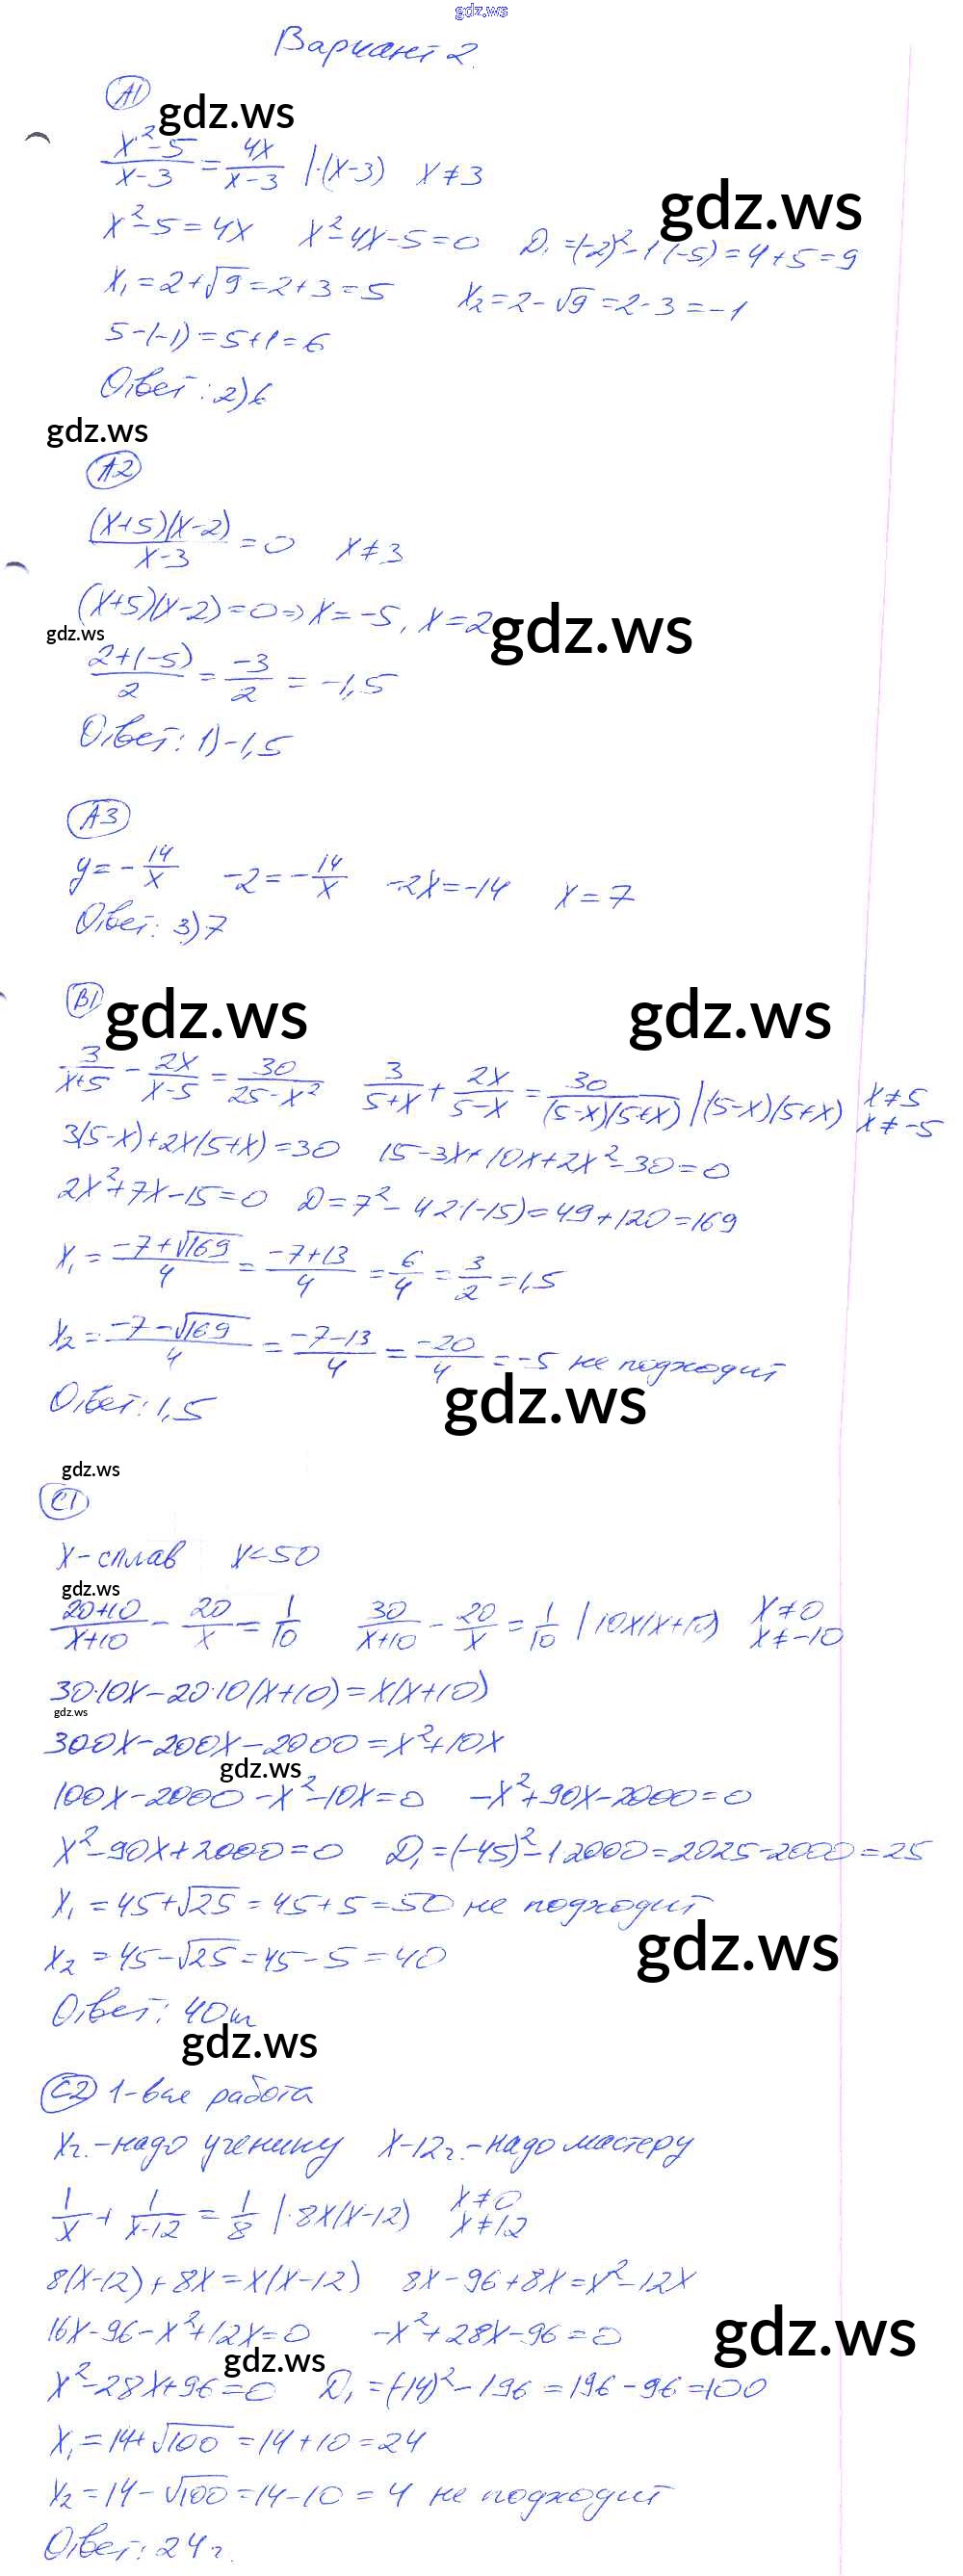 gdz.ws
Вариант 2.
А1
gdz.ws
(x²-5)/(x-3) = 4x/(x-3) |·(x-3) x≠3
gdz.ws
x²-5=4x x²-4x-5=0 D₁=(-2)²-1(-5)=4+5=9
x₁=2+√9=2+3=5 x₂=2-√9=2-3=-1
5-(-1)=5+1=6
Ответ: 2)6
gdz.ws
А2
((x+5)(x-2))/(x-3) = 0 x≠3
(x+5)(x-2)=0=>x=-5, x=2
gdz.ws
gdz.ws
(2+(-5))/2 = -3/2 = -1,5
Ответ: 1)-1,5
А3
y=-14/x -2=-14/x -2x=-14 x=7
Ответ: 3)7
В1
gdz.ws gdz.ws
3/(x+5) - 2x/(x-5) = 30/(25-x²) 3/(5+x) + 2x/(5-x) = 30/((5-x)(5+x)) |(5-x)(5+x) x≠5 x≠-5
3(5-x)+2x(5+x)=30 15-3x+10x+2x²-30=0
2x²+7x-15=0 D=7²-4·2·(-15)=49+120=169
x₁=(-7+√169)/4=(-7+13)/4=6/4=3/2=1,5
x₂=(-7-√169)/4=(-7-13)/4=-20/4=-5 не подходит
gdz.ws
Ответ: 1,5
gdz.ws
С1
x-сплав x<50
gdz.ws
(20+10)/(x+10) - 20/x = 1/10 30/(x+10) - 20/x = 1/10 |10x(x+10) x≠0 x≠-10
30·10x-20·10(x+10)=x(x+10)
gdz.ws
300x-200x-2000=x²+10x
gdz.ws
100x-2000-x²-10x=0 -x²+90x-2000=0
x²-90x+2000=0 D₁=(-45)²-1·2000=2025-2000=25
x₁=45+√25=45+5=50 не подходит
gdz.ws
x₂=45-√25=45-5=40
Ответ: 40т
gdz.ws
С2 1-вся работа
xч.-надо ученику x-12ч.-надо мастеру
1/x + 1/(x-12) = 1/8 |·8x(x-12) x≠0 x≠12
8(x-12)+8x=x(x-12) 8x-96+8x=x²-12x
gdz.ws
16x-96-x²+12x=0 -x²+28x-96=0
gdz.ws
x²-28x+96=0 D₁=(-14)²-196=196-96=100
x₁=14+√100=14+10=24
x₂=14-√100=14-10=4 не подходит
Ответ: 24ч.